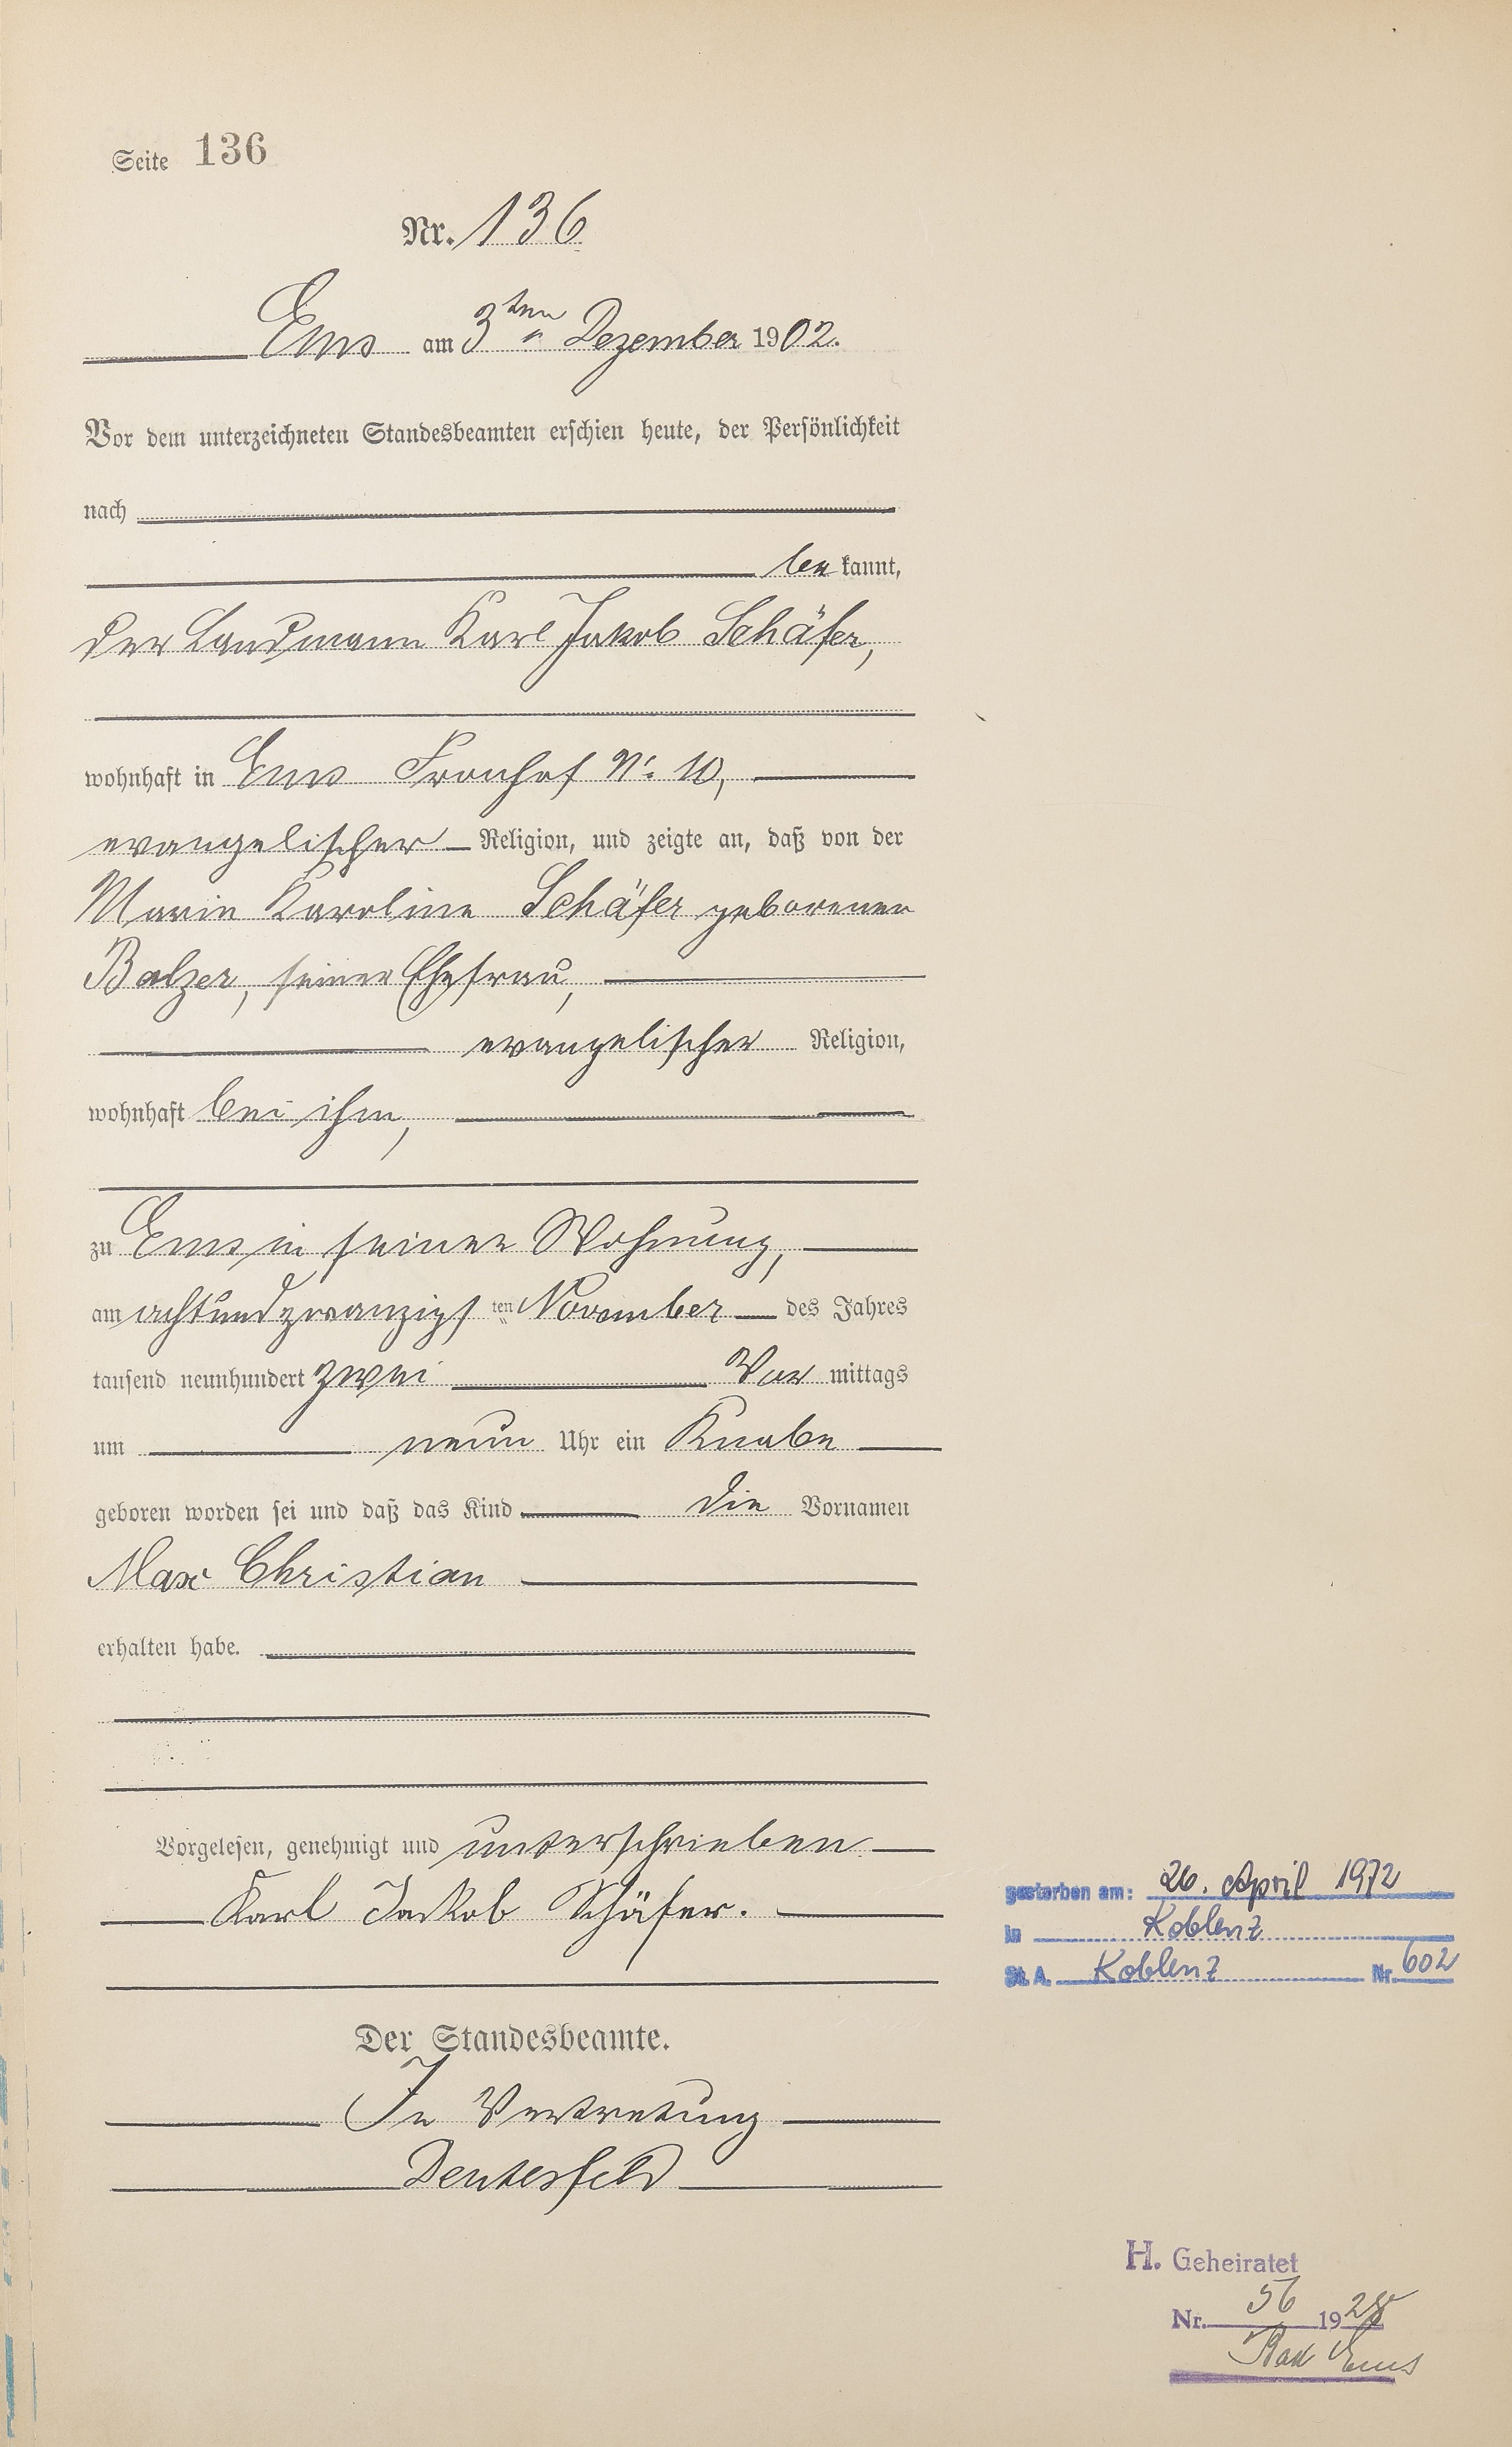 Seite 136
Nr. 136
Ems am 3ten Dezember 1902.
Vor dem unterzeichneten Standesbeamten erschien heute, der Persönlichkeit
nach
bekannt,
der Landmann Karl Jakob Schäfer,
wohnhaft in Ems Fronhof No. 10,
evangelischer Religion, und zeigte an, daß von der
Marie Karoline Schäfer geborenen
Balzer, seiner Ehefrau,
evangelischer Religion,
wohnhaft bei ihm,
zu Ems in seiner Wohnung,
am achtundzwanzigsten November des Jahres
tausend neunhundert zwei Vormittags
um neun Uhr ein Knabe
geboren worden sei und daß das Kind die Vornamen
Max Christian
erhalten habe.
Vorgelesen, genehmigt und unterschrieben
Karl Jakob Schäfer.
Der Standesbeamte.
In Vertretung
gestorben am: 26. April 1972
in Koblenz
St. A. Koblenz Nr. 602
H. Geheiratet
Nr. 56 1928
Bad Ems